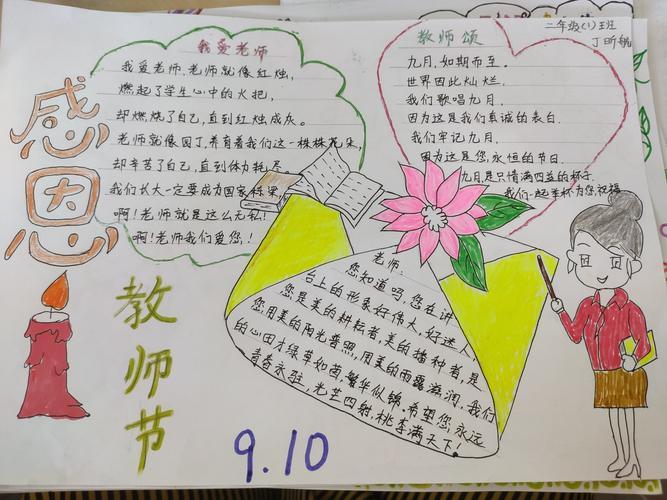 二年级(1)班
丁昕航
感恩
我爱老师
我爱老师，老师就像红烛，
燃起了学生心中的火把，
却燃烧了自己，直到红烛成灰。
老师就像园丁，养育着我们这一株株花朵，
却辛苦了自己，直到体力耗尽
我们长大一定要成为国家栋梁
啊！老师就是这么无私！
啊！老师我们爱您！
教师颂
九月，如期而至。
世界因此灿烂。
我们歌唱九月，
因为这是我们真诚的表白
我们牢记九月，
因为这是您，永恒的节日.
九月是只情满四溢的杯子
我们一起举杯为您，祝福
老师：
您知道吗，您在讲
台上的形象好伟大，好迷人，
您是美的耕耘者，美的播种者，是
您用美的阳光普照，用美的雨露滋润，我们
的心田才绿草如茵，繁华似锦。希望您，永远
青春永驻，光芒四射，桃李满天下！
教师节
9.10